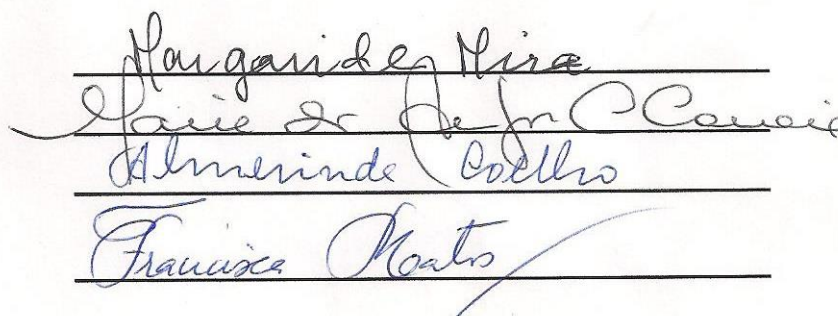 Margarida Mira
Maria de C
Almerinda Coelho
Francisca Matos